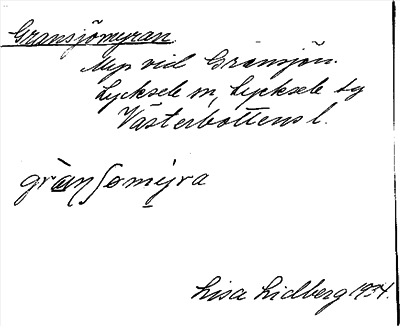 Gransjömyran.
Myr vid Gransjön.
Lycksele sn, Lycksele sg
Västerbottens l.
grànʃomy̱ra
Lisa Lidberg 1934.